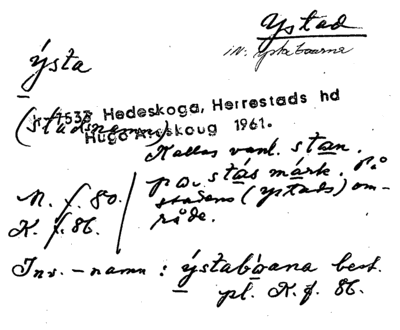 Ystad
inv. Ystaboarne
ýsta
(stadsnamn)
7533 Hedeskoga, Herrestads hd
Hugo Areskoug 1961.
Kallas vanl. stan.
på stás márk. På
stadens (Ystads) om-
råde.
M. f. 80.
K. f. 86.
Inv.-namn : ýstabóana best.
pl. K. f. 86.